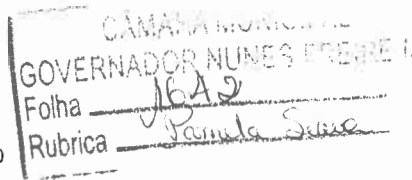 CÂMARA MUNICIPAL
GOVERNADOR NUNES FREIRE
Folha 1642
Rubrica Pamela